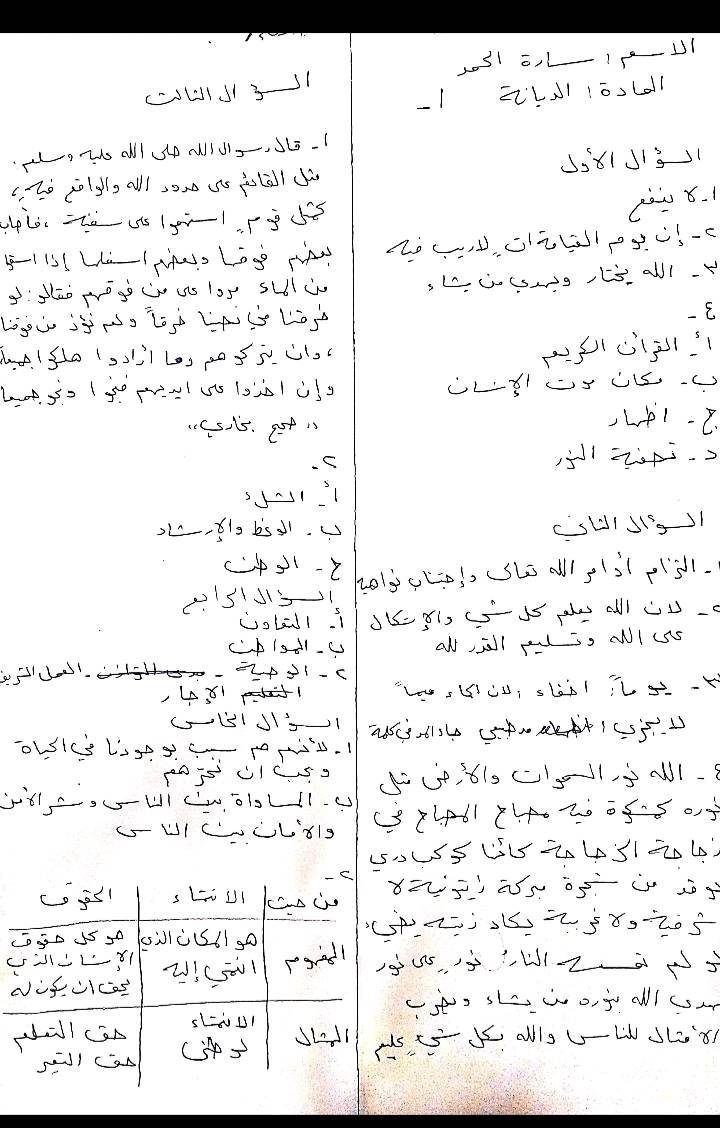 الاسم : سارة الحمد
المادة : الديانة -1
السؤال الأول
1- لا ينفع
2- إن يوم القيامة ات لاريب فيه
3- الله يختار ويهدي من يشاء
4-
أ- القرأن الكريم
ب- مكان موت الإنسان
ج- اظهار
د-
السؤال الثاني
1- التزام أوامر الله تعالى وإجتناب نواهيه
2- لان الله يعلم كل شي والإتكال
على الله وتسليم القدر لله
3- يوماً : اخفاء :
لا يجزي : اظهار جاء المد في كلمة
4- الله نور السموات والأرض مثل
نوره كمشكوة فيه مصباح المصباح في
زجاجة الزجاجة كانها كوكب دري
يوقد من شجرة مبركة زيتونية لا
شرقية ولا غربية يكاد زيته يضيء
لو لم تمسه النار نور على نور
يهدي الله بنوره من يشاء ويضرب
الأمثال للناس والله بكل شيءٍ عليم
السؤال الثالث
1- قال رسوال الله صلى الله عليه وسلم.
مثل القائم على حدود الله والواقع فيها
كمثل قومٍ استهموا على سفينة ، فأصاب
بعضهم فوقها وبعضهم اسفلها إذا استقا
من الماء مروا على من فوقهم فقالو : لو
خرقنا في نصيبنا خرقاً ولم نؤذ من فوقنا
، وان يتركوهم وما أرادوا هلكوا جميعاً
وإن اخذوا على ايديهم فنجوا ونجو جميعا
,, صحيح بخاري,,
2-
أ-
ب- الوعظ والإرشاد
ج- الوطن
السؤال الرابع
أ- التعاون
ب- المواطن
2- الوصية - - العمل الشريف
الإجار
السؤال الخامس
1- لأنهم هم سبب بوجودنا في الحياة
ويجب ان نحترهم
ب- المساواة بين الناس ونشر الأمن
والأمان بين الناس
2-
من حيث | الانتماء | الحقوق
المفهوم | هو المكان الذي انتمي إليه | هو كل حقوق الإنسان الذي يحق ان يكون له
المثال | الانتماء لوطني | حق التعلم حق